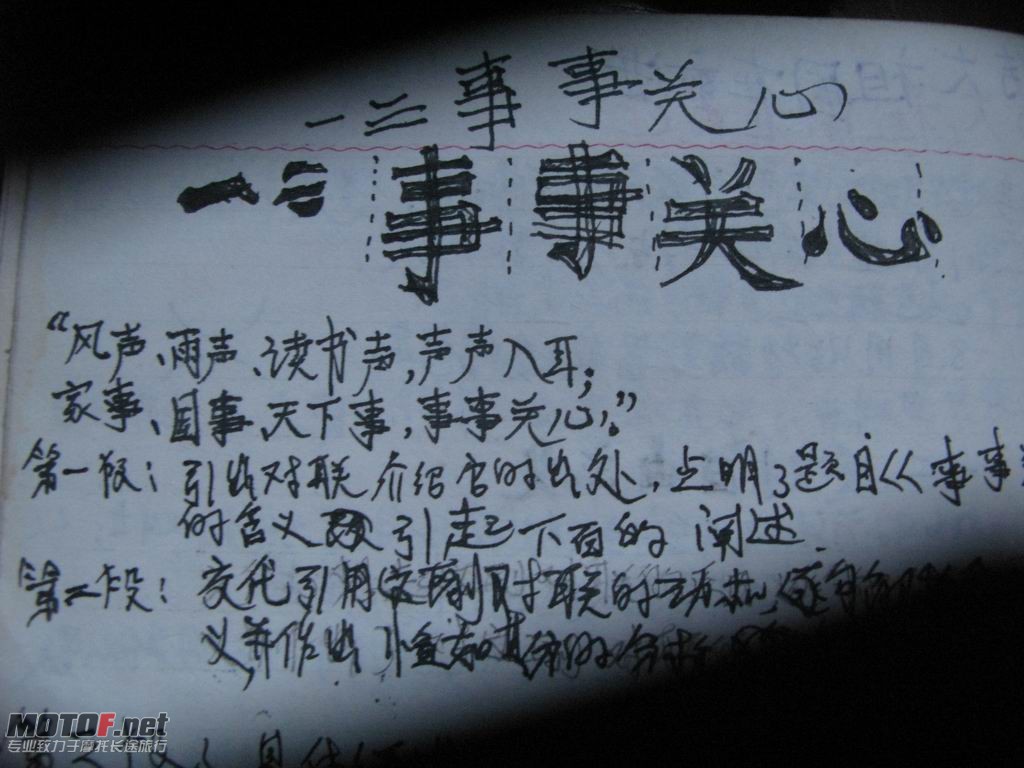 一二事事关心
一二事事关心
“风声、雨声、读书声,声声入耳;
家事、国事、天下事,事事关心。”
第一段:引出对联介绍它的出处,点明了题目《事事
的含义 引起下面的阐述.
第二段:交代引用这副对联的
义,并作出 的分析
MOTOF.net
专业致力于摩托长途旅行